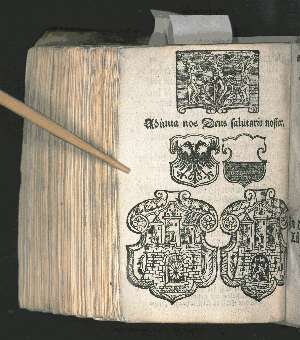 Adiuua nos Deus salutaris noster.